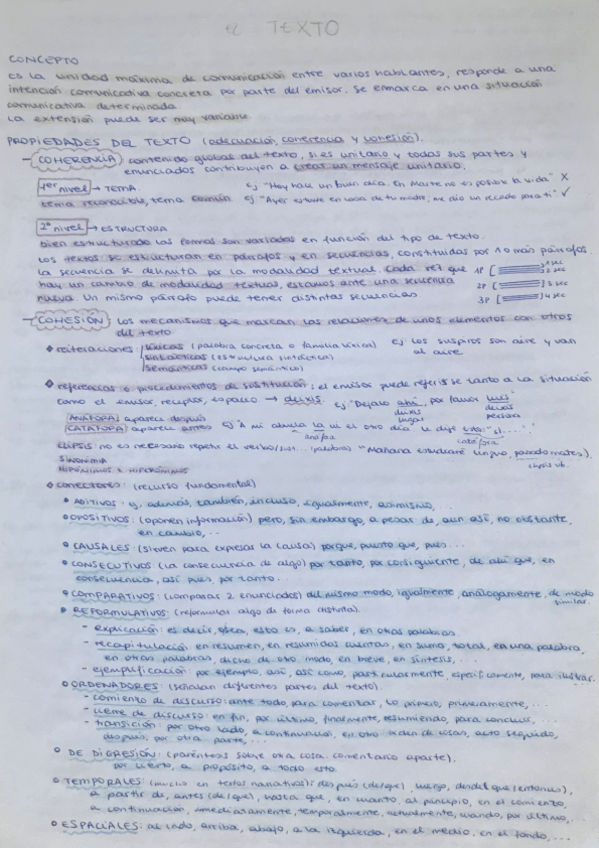 EL TEXTO
CONCEPTO
es la unidad máxima de comunicación entre varios hablantes, responde a una
intención comunicativa concreta por parte del emisor. Se enmarca en una situación
comunicativa determinada.
La extensión puede ser muy variable.
PROPIEDADES DEL TEXTO (adecuación, coherencia y cohesión).
- COHERENCIA: contenido global del texto, si es unitario y todas sus partes y
enunciados contribuyen a crear un mensaje unitario.
1er nivel → TEMA. ej "Hoy hace un buen día. En Marte no es posible la vida" X
tema reconocible, tema común ej "Ayer estuve en casa de tu madre; me dio un recado para ti" ✓
2º nivel → ESTRUCTURA
bien estructurado las formas son variadas en función del tipo de texto.
Los textos se estructuran en párrafos y en secuencias, constituidas por 1 o más párrafos.
La secuencia se delimita por la modalidad textual. Cada vez que 1P 2 sec
hay un cambio de modalidad textual, estamos ante una secuencia 2P 3 sec
nueva. Un mismo párrafo puede tener distintas secuencias 3P 4 sec
- COHESIÓN: los mecanismos que marcan las relaciones de unos elementos con otros
del texto.
reiteraciones: léxicas (palabra concreta o familia léxica) ej los suspiros son aire y van
sintácticas (estructura sintáctica) al aire
semánticas (campo semántico)
referencias o procedimientos de sustitución: el emisor puede referirse tanto a la situación
como el emisor, receptor, espacio → deixis. ej: "Déjalo ahí, por favor Luis"
deixis lugar deixis persona
ANÁFORA: aparece después
CATÁFORA: aparece antes ej "A mi abuela la vi el otro día" le dije esto: "sí....."
anáfora catáfora
ELIPSIS: no es necesario repetir el verbo/sust... (palabras) "Mañana estudiaré lengua, pasado mates).
elipsis vb.
SINONIMIA
HIPÓNIMOS E HIPERÓNIMOS
conectores: (recurso fundamental)
ADITIVOS: y, además, también, incluso, igualmente, asimismo,...
OPOSITIVOS: (oponen información) pero, sin embargo, a pesar de, aun así, no obstante,
en cambio,...
CAUSALES: (sirven para expresar la causa) porque, puesto que, pues...
CONSECUTIVOS: (la consecuencia de algo) por tanto, por consiguiente, de ahí que, en
consecuencia, así pues, por tanto.
COMPARATIVOS: (comparar 2 enunciados) del mismo modo, igualmente, análogamente, de modo
similar.
REFORMULATIVOS: (reformular algo de forma distinta).
- explicación: es decir, o sea, esto es, a saber, en otras palabras.
- recapitulación: en resumen, en resumidas cuentas, en suma, total, en una palabra,
en otras palabras, dicho de otro modo, en breve, en síntesis,...
- ejemplificación: por ejemplo, así, así como, particularmente, específicamente, para ilustrar.
ORDENADORES: (señalan diferentes partes del texto).
- comienzo de discurso: ante todo, para comenzar, lo primero, primeramente,...
- cierre de discurso: en fin, por último, finalmente, resumiendo, para concluir,...
- transición: por otro lado, a continuación, en otro orden de cosas, acto seguido,
después, por otra parte,...
DE DIGRESIÓN: (paréntesis sobre otra cosa. comentario aparte).
por cierto, a propósito, a todo esto.
TEMPORALES: (mucho en textos narrativos): después (de/que), luego, desde (que/entonces),
a partir de, antes (de/que), hasta que, en cuanto, al principio, en el comienzo,
a continuación, inmediatamente, temporalmente, actualmente, cuando, por último,...
ESPACIALES: al lado, arriba, abajo, a la izquierda, en el medio, en el fondo,...